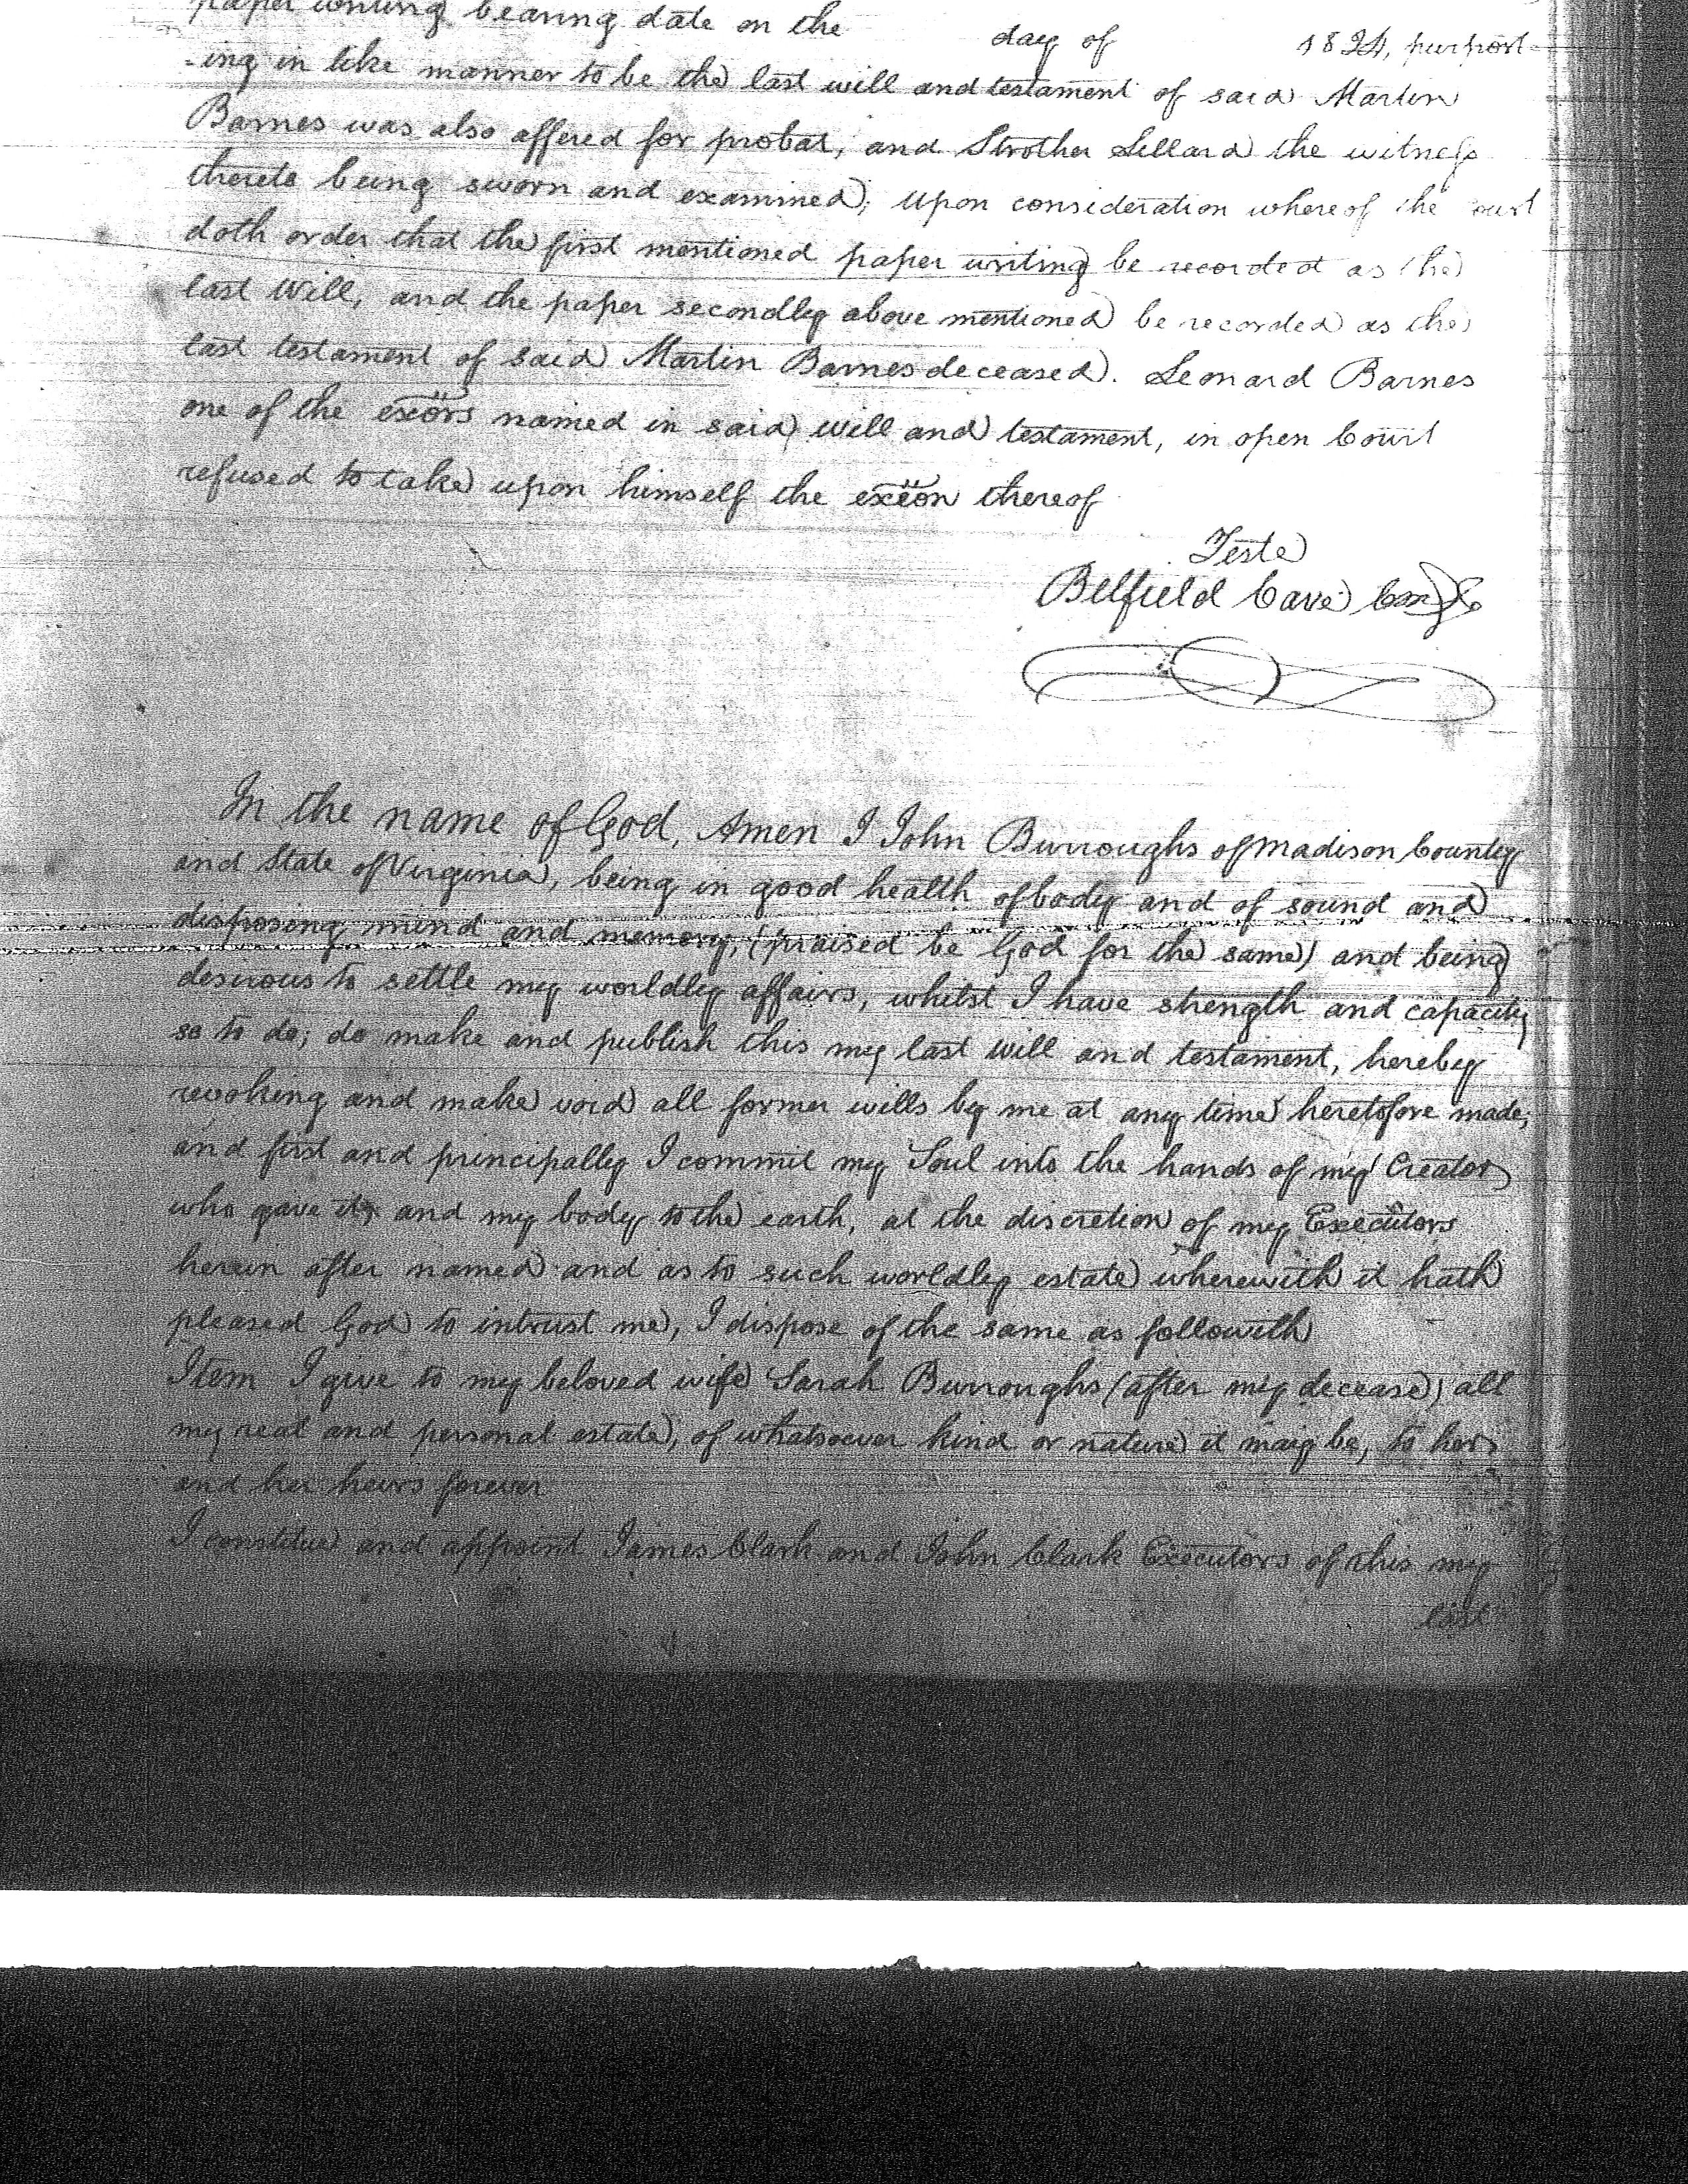 paper writing bearing date on the day of 1824, purport-
-ing in like manner to be the last will and testament of said Martin
Barnes was also affered for probat, and Strother Sellard the witness
thereto being sworn and examined; Upon consideration whereof the ourt
doth order that the first mentioned paper writing be recorded as the
last Will, and the paper secondly above mentioned be recorded as the
last testament of said Martin Barnes deceased. Leonard Barnes
one of the exörs named in said will and testament, in open Court
refused to take upon himself the exëön thereof
Teste
Belfield Cave
In the name of God, Amen I John Burroughs of Madison County
and State of Virginia, being in good health of body and of sound and
disposing mind and memory, (praised be God for the same) and being
desirous to settle my worldly affairs, whilst I have strength and capacity
so to do; do make and publish this my last will and testament, hereby
revoking and make void all former wills by me at any time heretofore made;
and first and principally I commit my Soul into the hands of my Creator
who gave it, and my body to the earth, at the discretion of my Executors
herein after named and as to such worldly estate wherewith it hath
pleased God to intrust me, I dispose of the same as followith
Item I give to my beloved wife Sarah Burroughs (after my decease) all
my real and personal estate, of whatsoever kind or nature it may be, to her
and her heirs forever
I constitue and appoint James Clark and John Clark Executors of this my
last